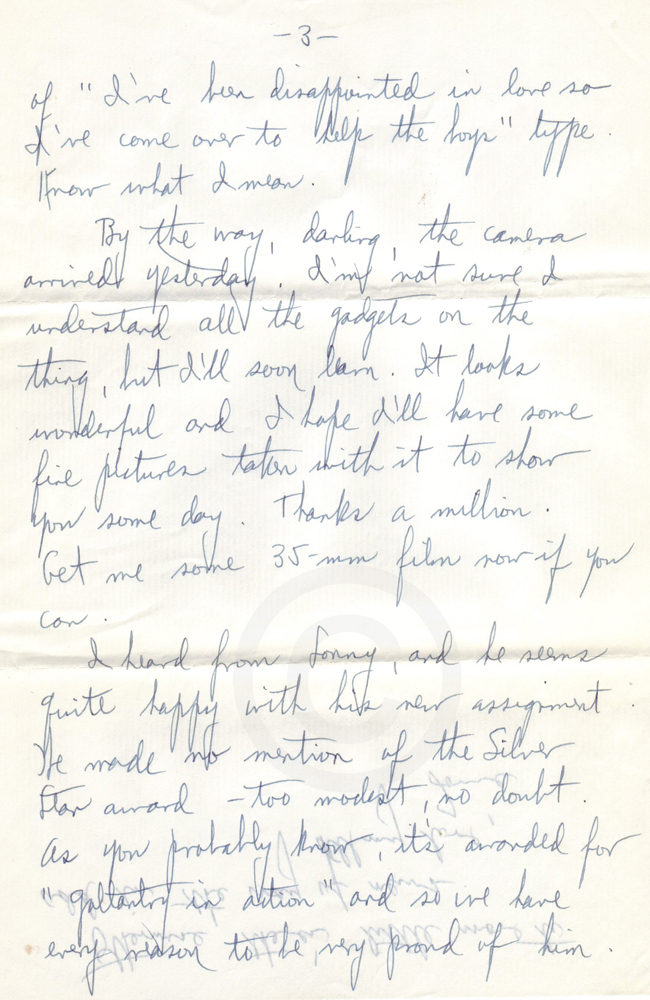 -3-
of "I've been disappointed in love so
I've come over to help the boys" type.
Know what I mean.
By the way, darling, the camera
arrived yesterday. I'm not sure I
understand all the gadgets on the
thing, but I'll soon learn. It looks
wonderful and I hope I'll have some
fine pictures taken with it to show
you some day. Thanks a million.
Get me some 35-mm film now if you
can.
I heard from Sonny, and he seems
quite happy with his new assignment.
He made no mention of the Silver
Star award - too modest, no doubt.
As you probably know, it's awarded for
"gallantry in action" and so we have
every reason to be very proud of him.
©